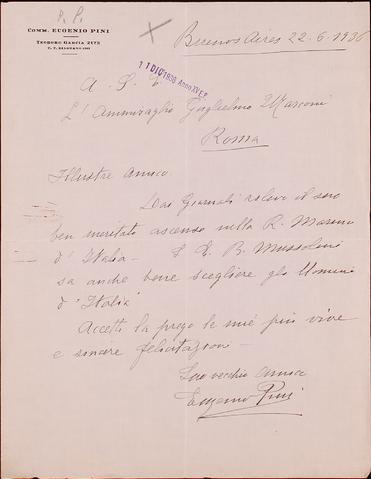 P. P.
COMM. EUGENIO PINI
TEODORO GARCÍA 2172
Buenos Aires 22-6-1936
11 DIC 1936 Anno XV E.F.
A S. E.
L'Ammiraglio Guglielmo Marconi
Roma
Illustre Amico.
Dai Giornali rilevo il suo
ben meritato ascenso nella R. Marina
d'Italia — S. E. B. Mussolini
sa anche bene scegliere gli Uomini
d'Italia
Accetti la prego le mie più vive
e sincere felicitazioni —
Suo vecchio amico
Eugenio Pini